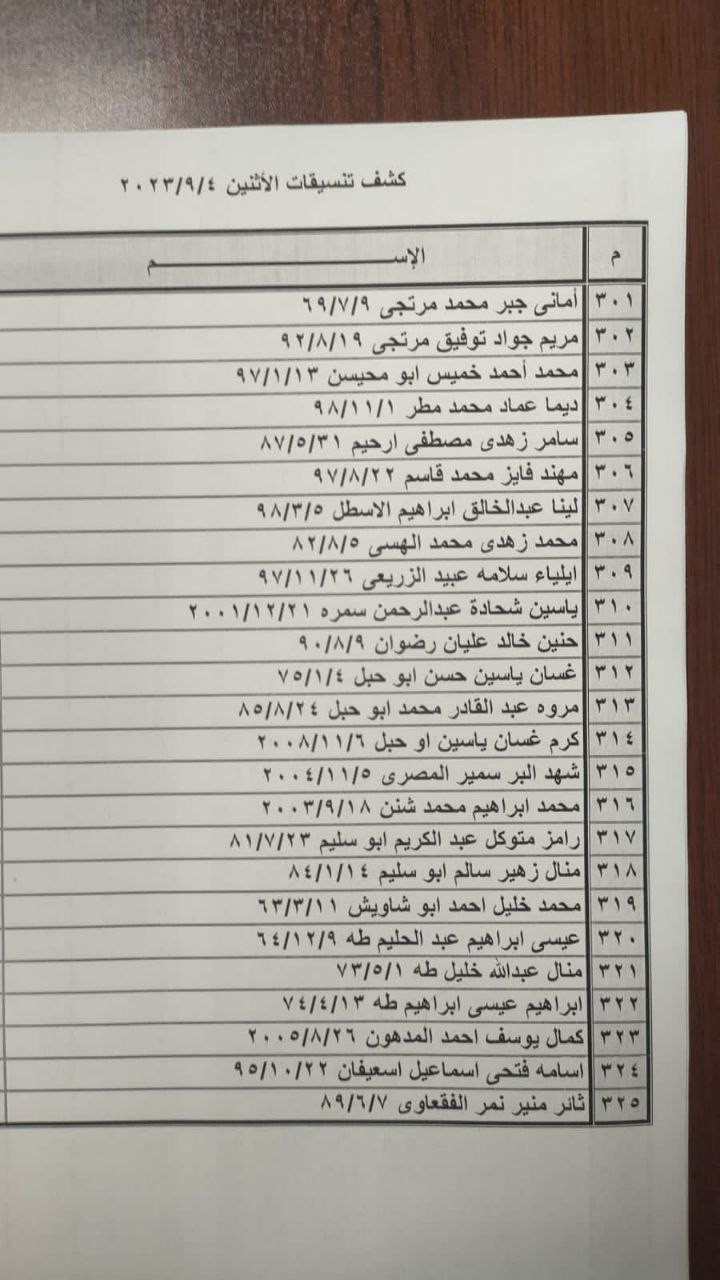 كشف تنسيقات الأثنين ٢٠٢٣/٩/٤
م الإســـــــــــــــــــــــم
٣٠١ أمانى جبر محمد مرتجى ٦٩/٧/٩
٣٠٢ مريم جواد توفيق مرتجى ٩٢/٨/١٩
٣٠٣ محمد أحمد خميس ابو محيسن ٩٧/١/١٣
٣٠٤ ديما عماد محمد مطر ٩٨/١١/١
٣٠٥ سامر زهدى مصطفى ارحيم ٨٧/٥/٣١
٣٠٦ مهند فايز محمد قاسم ٩٧/٨/٢٢
٣٠٧ لينا عبدالخالق ابراهيم الاسطل ٩٨/٣/٥
٣٠٨ محمد زهدى محمد الهسى ٨٢/٨/٥
٣٠٩ ايلياء سلامه عبيد الزريعى ٩٧/١١/٢٦
٣١٠ ياسين شحادة عبدالرحمن سمره ٢٠٠١/١٢/٢١
٣١١ حنين خالد عليان رضوان ٩٠/٨/٩
٣١٢ غسان ياسين حسن ابو حبل ٧٥/١/٤
٣١٣ مروه عبد القادر محمد ابو حبل ٨٥/٨/٢٤
٣١٤ كرم غسان ياسين او حبل ٢٠٠٨/١١/٦
٣١٥ شهد البر سمير المصرى ٢٠٠٤/١١/٥
٣١٦ محمد ابراهيم محمد شنن ٢٠٠٣/٩/١٨
٣١٧ رامز متوكل عبد الكريم ابو سليم ٨١/٧/٢٣
٣١٨ منال زهير سالم ابو سليم ٨٤/١/١٤
٣١٩ محمد خليل احمد ابو شاويش ٦٣/٣/١١
٣٢٠ عيسى ابراهيم عبد الحليم طه ٦٤/١٢/٩
٣٢١ منال عبدالله خليل طه ٧٣/٥/١
٣٢٢ ابراهيم عيسى ابراهيم طه ٧٤/٤/١٣
٣٢٣ كمال يوسف احمد المدهون ٢٠٠٥/٨/٢٦
٣٢٤ اسامه فتحى اسماعيل اسعيفان ٩٥/١٠/٢٢
٣٢٥ ثائر منير نمر الفقعاوى ٨٩/٦/٧